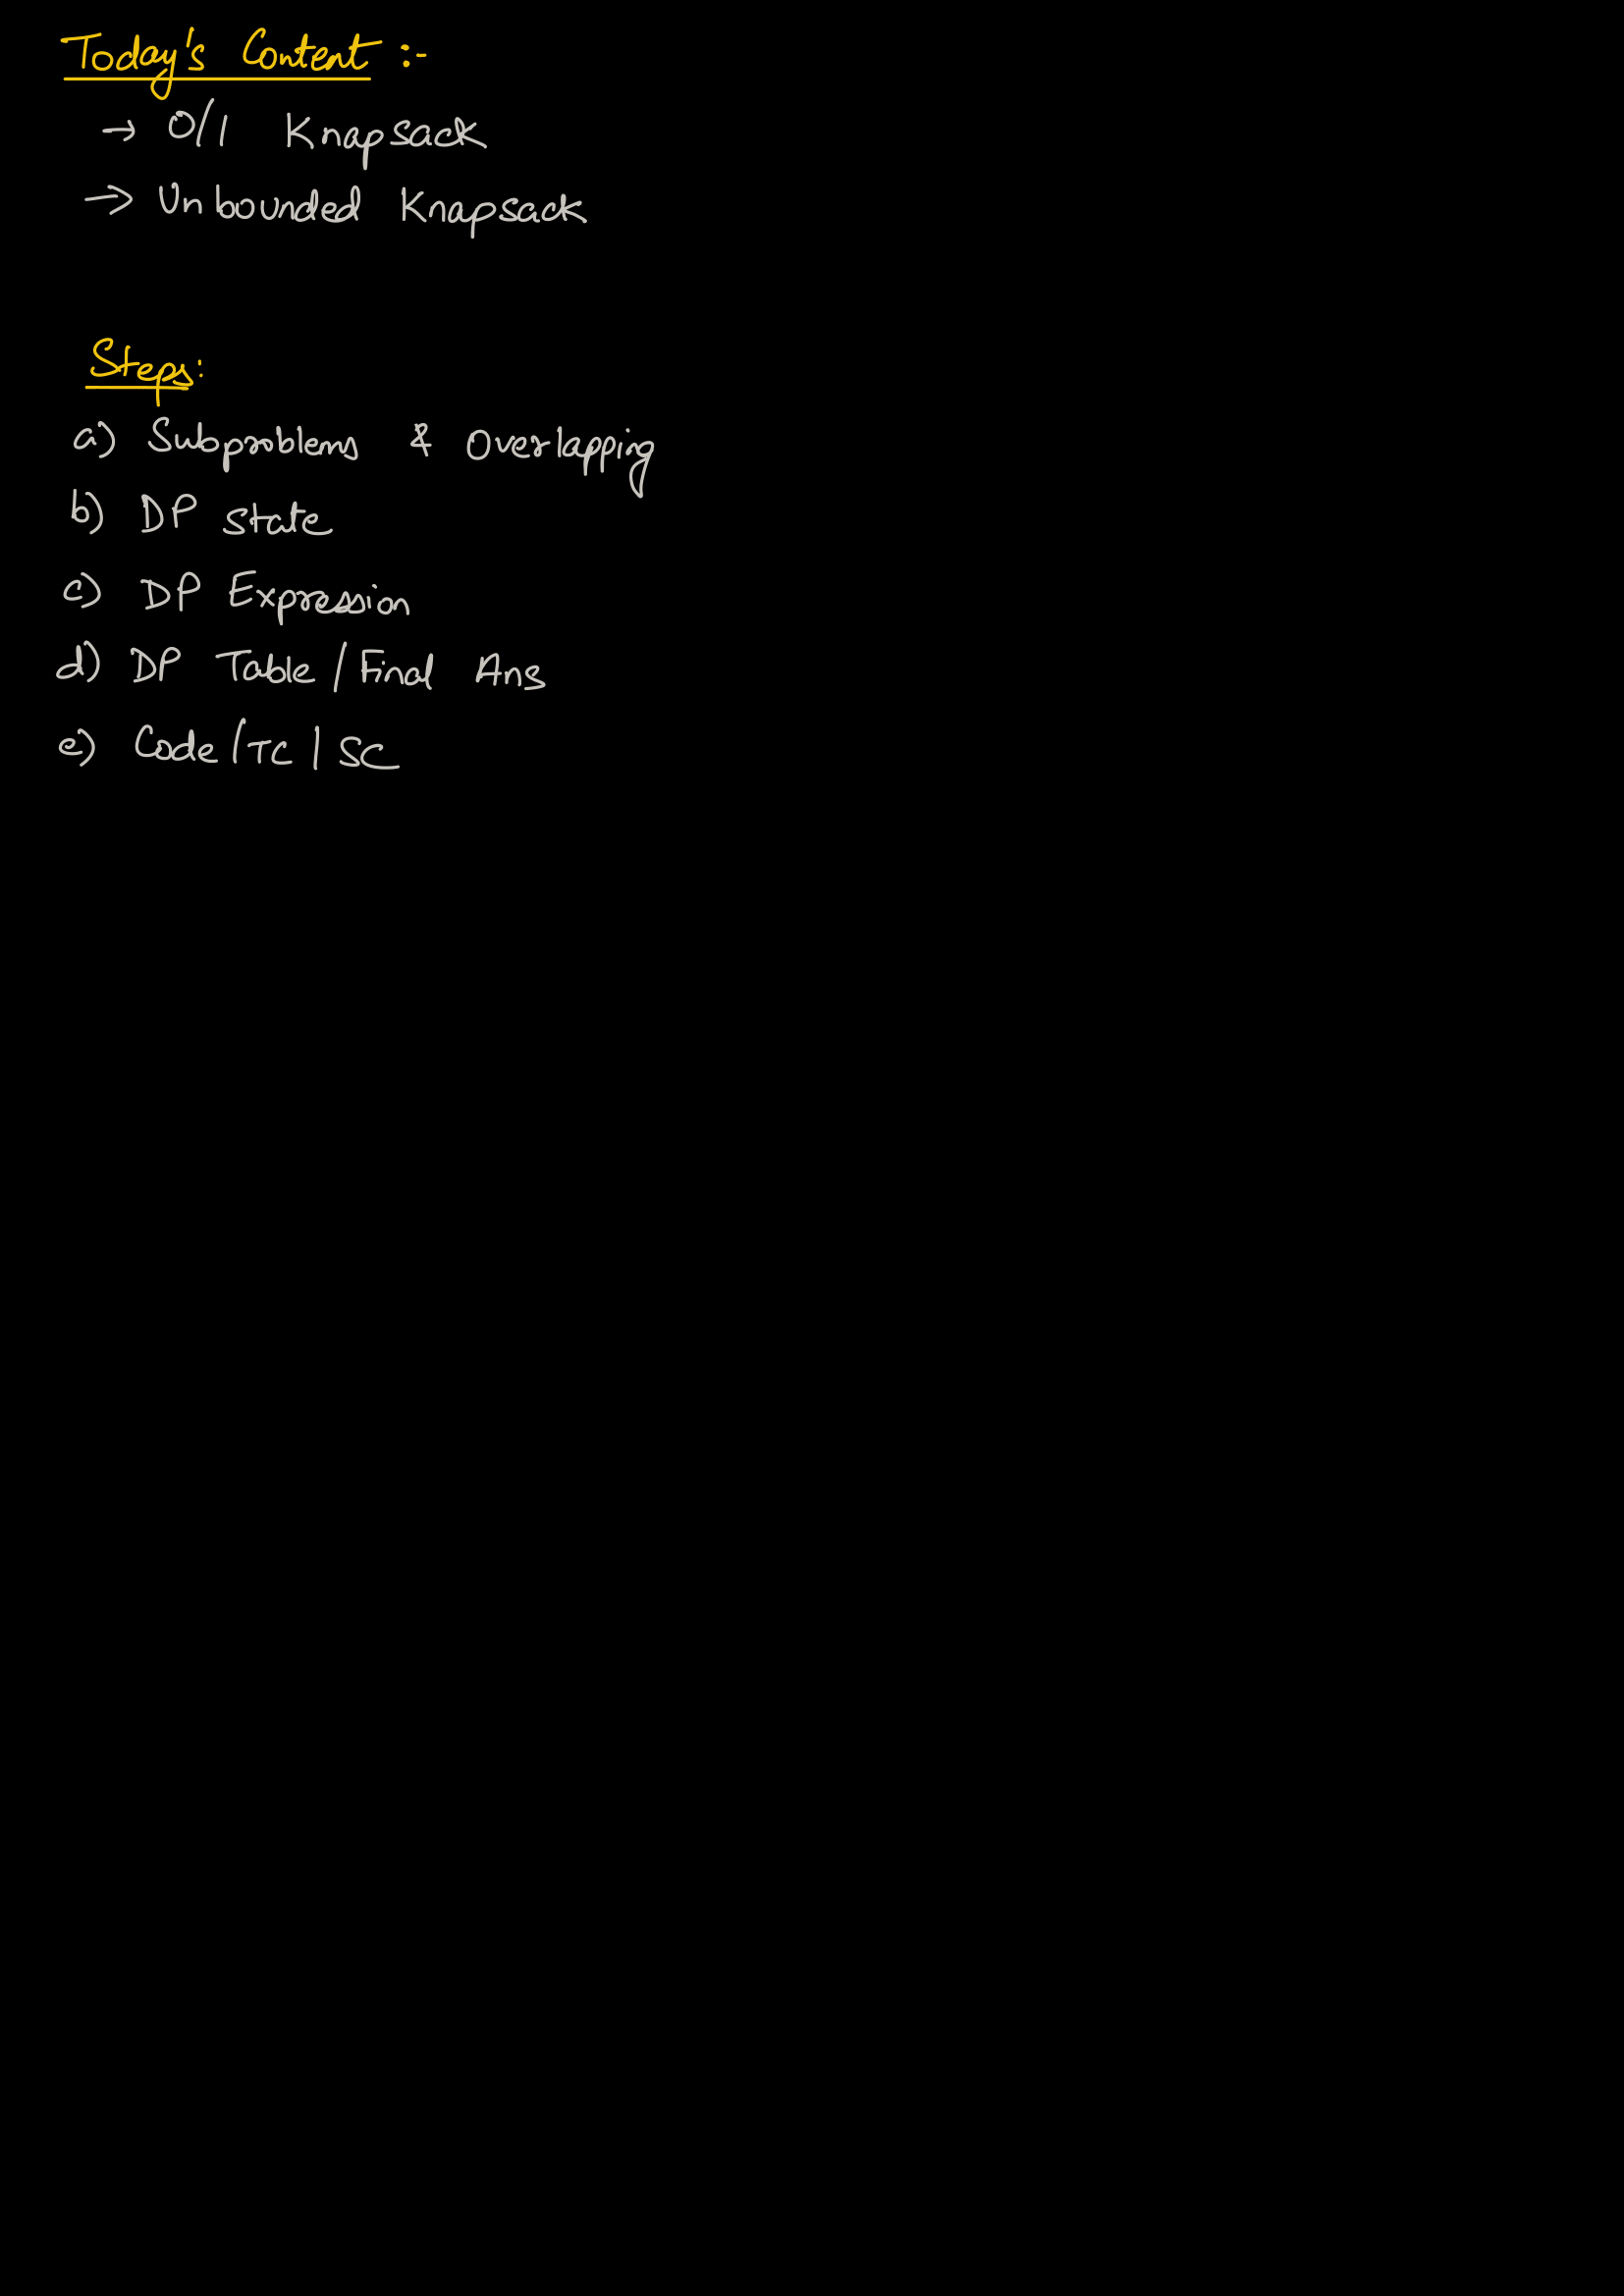 Today's Content :-
→ 0/1 Knapsack
→ Unbounded Knapsack
Steps:
a) Subproblems & Overlapping
b) DP state
c) DP Expression
d) DP Table / Final Ans
e) Code / TC / SC